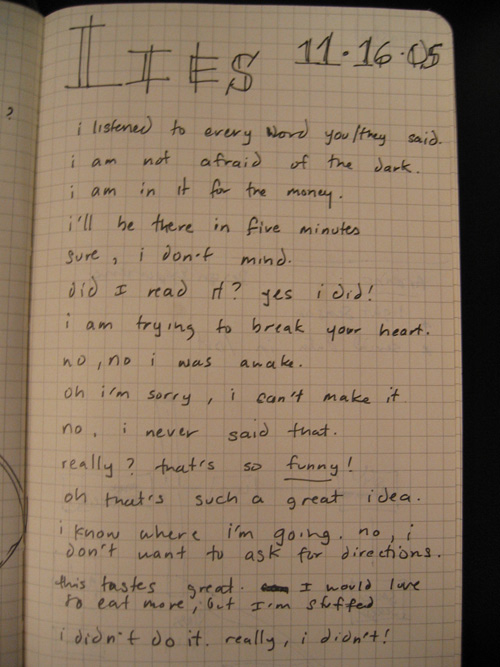 LIES 11·16·05
i listened to every word you/they said.
i am not afraid of the dark.
i am in it for the money.
i'll be there in five minutes
sure, i don't mind.
did I read it? yes i did!
i am trying to break your heart.
no, no i was awake.
oh i'm sorry, i can't make it
no, i never said that.
really? that's so funny!
oh that's such a great idea.
i know where i'm going. no, i
don't want to ask for directions.
this tastes great. I would love
to eat more, but I'm stuffed
i didn't do it. really, i didn't!
?